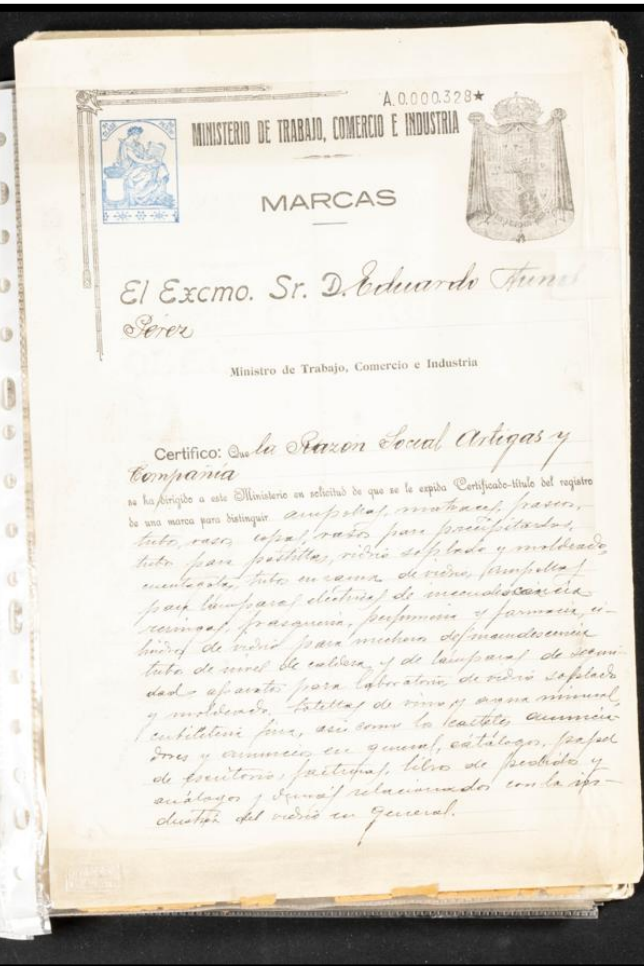 A.0.000.328★
MINISTERIO DE TRABAJO, COMERCIO E INDUSTRIA
MARCAS
El Excmo. Sr. D. Eduardo
Pérez
Ministro de Trabajo, Comercio e Industria
Certifico: Que la Razón Social Artigas y
Compañía
se ha dirigido a este Ministerio en solicitud de que se le expida Certificado-título del registro
de una marca para distinguir ampollas, matraces, frascos,
tubos, vasos, copas, vasos para precipitados,
tubos para pastillas, vidrio soplado y moldeado,
cuentagotas, tubos en rama de vidrio, ampollas
para lámparas eléctricas de incandescencia
jeringas, frasquería, perfumería y farmacia, ci-
lindros de vidrio para mecheros de incandescencia
tubos de nivel de caldera y de lámparas de seguri-
dad, aparatos para laboratorio de vidrio soplado
y moldeado, botellas de vino y agua mineral,
cubiletería fina, así como los carteles anuncia-
dores y anuncios en general, catálogos, papel
de escritorio, facturas, libros de pedido y
análogos y demás relacionados con la in-
dustria del vidrio en general.